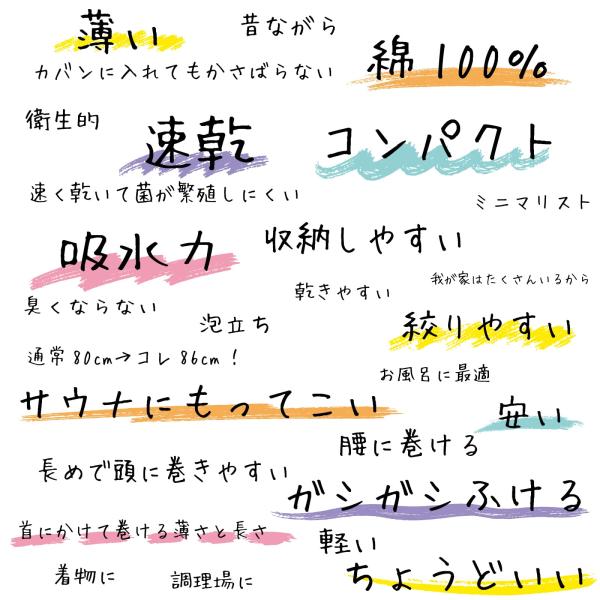 薄い
昔ながら
カバンに入れてもかさばらない
綿100%
衛生的
速乾
コンパクト
速く乾いて菌が繁殖しにくい
ミニマリスト
吸水力
収納しやすい
臭くならない
乾きやすい
我が家はたくさんいるから
泡立ち
絞りやすい
通常80cm→コレ86cm!
お風呂に最適
サウナにもってこい
安い
腰に巻ける
長めで頭に巻きやすい
ガシガシふける
首にかけて巻ける薄さと長さ
軽い
着物に
調理場に
ちょうどいい